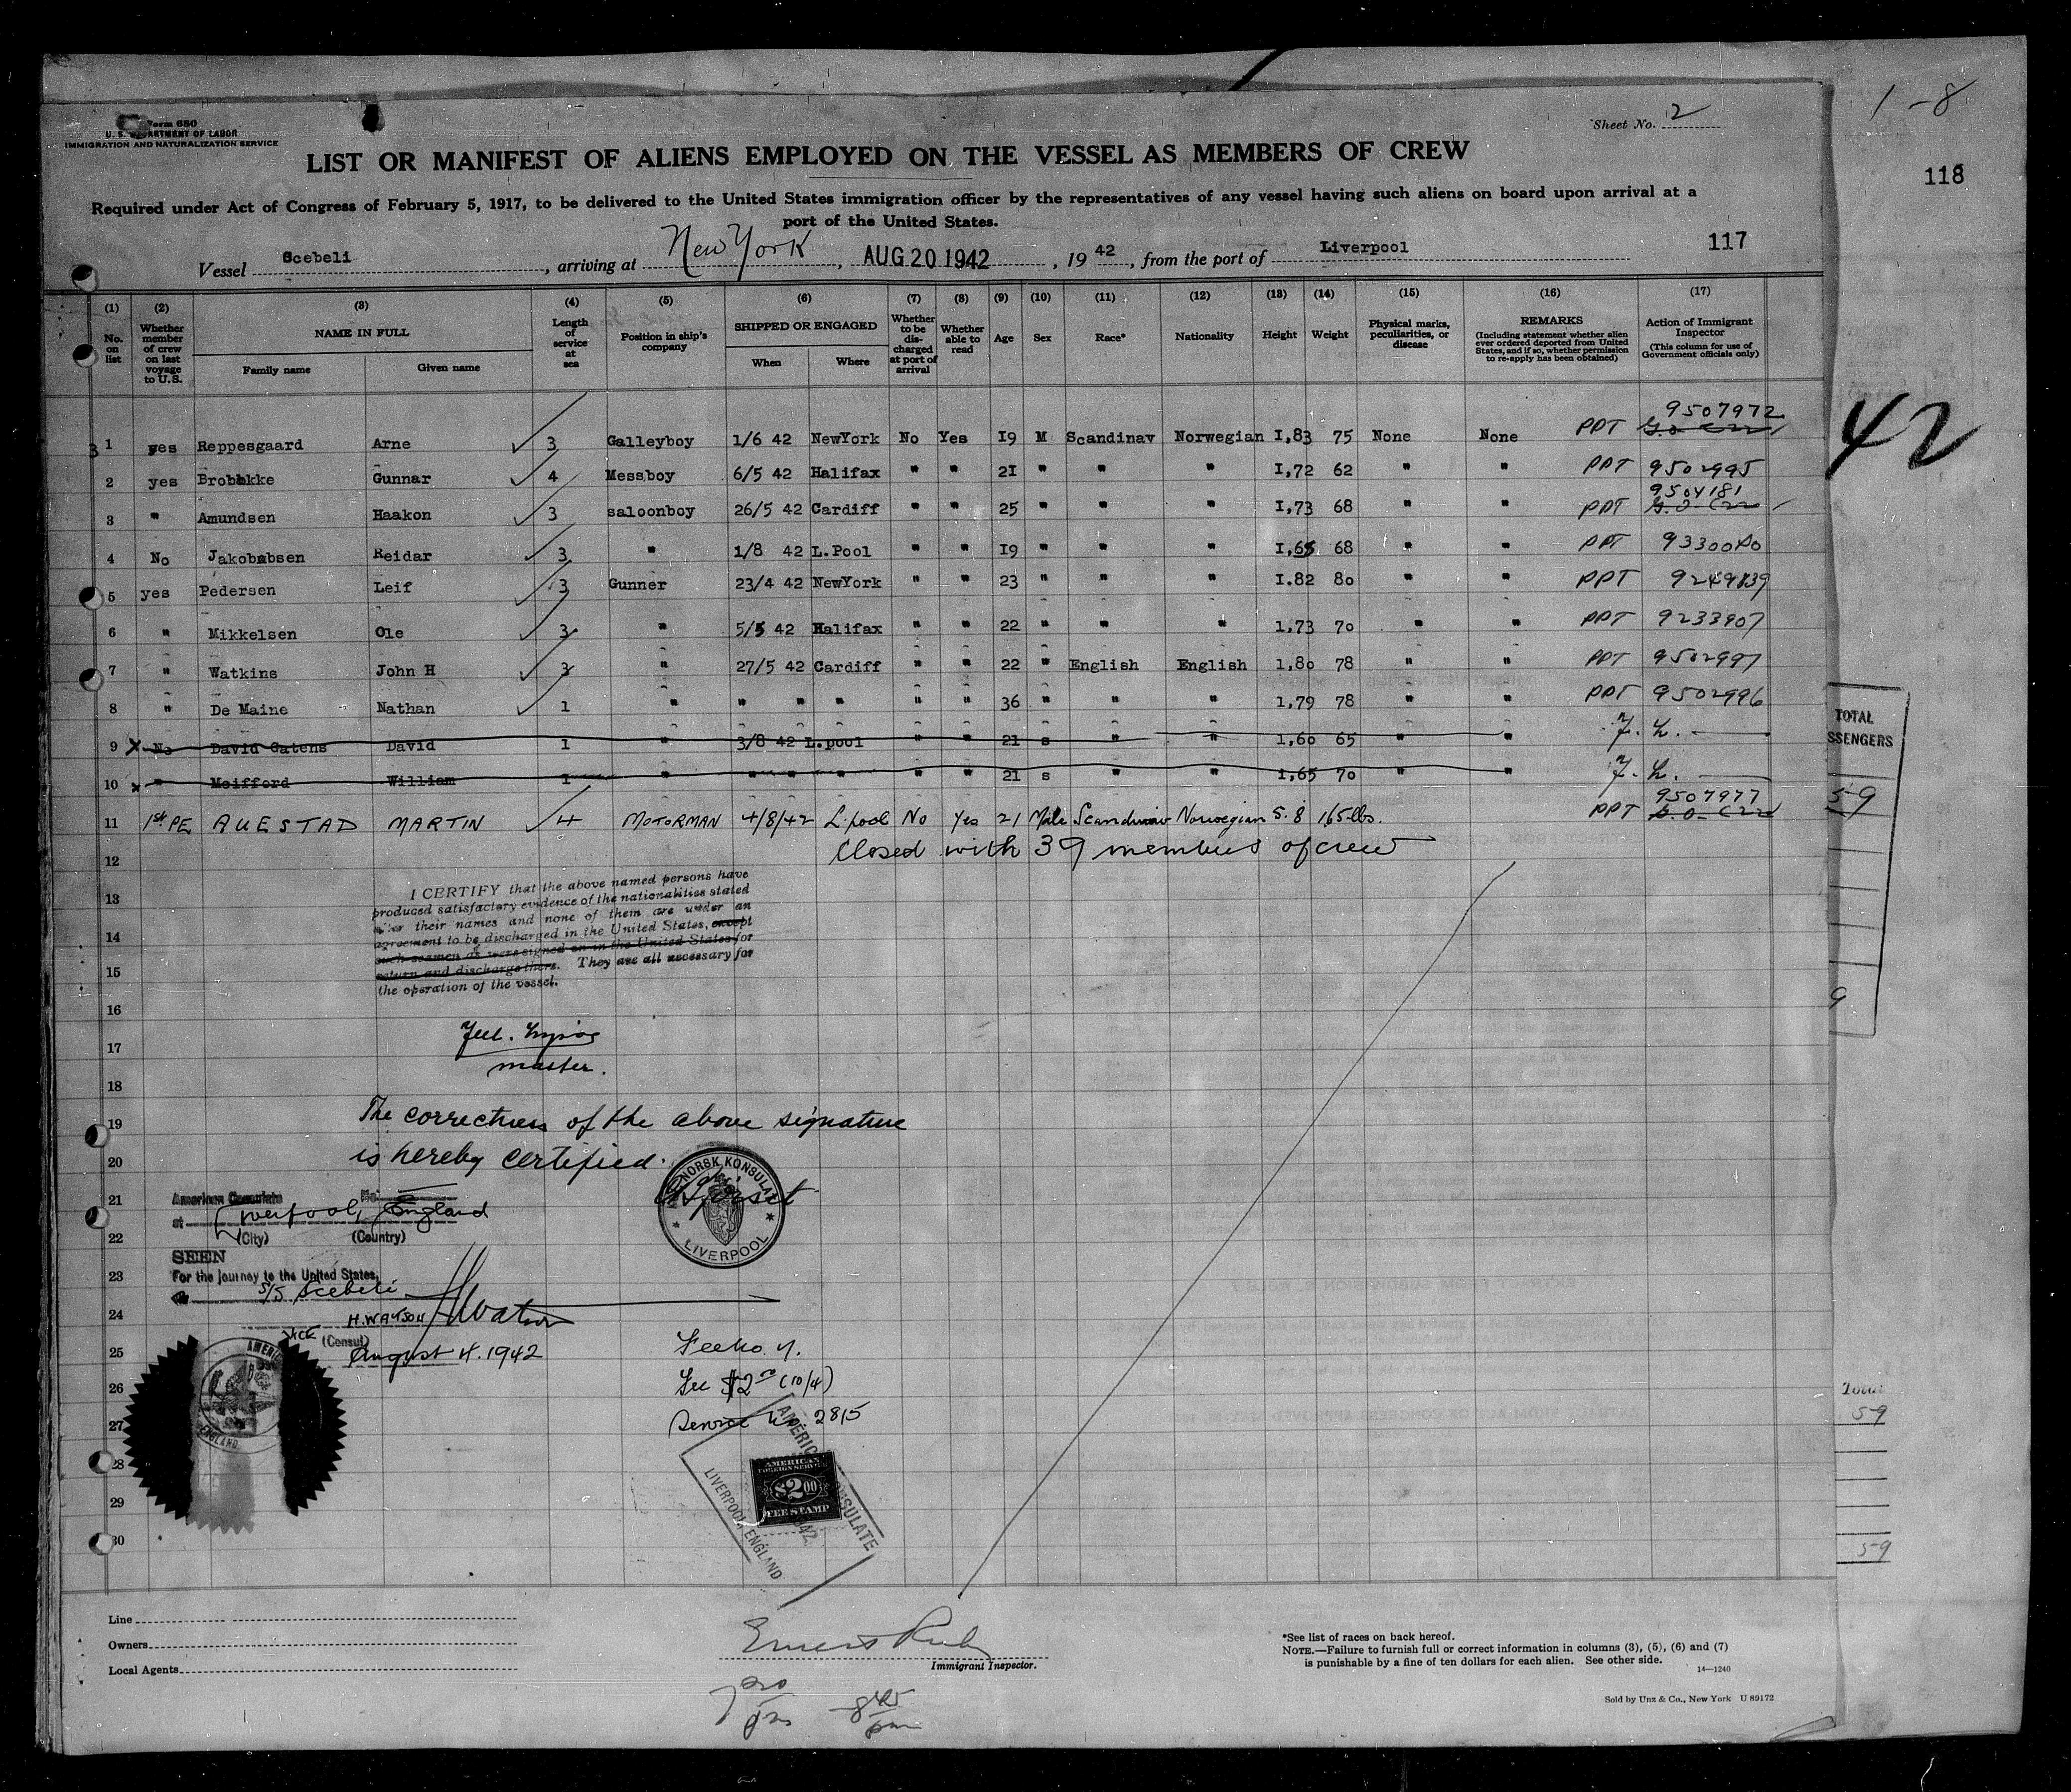 Form 680
U. S. DEPARTMENT OF LABOR
IMMIGRATION AND NATURALIZATION SERVICE
Sheet No. 2
1-8
118
LIST OR MANIFEST OF ALIENS EMPLOYED ON THE VESSEL AS MEMBERS OF CREW
Required under Act of Congress of February 5, 1917, to be delivered to the United States immigration officer by the representatives of any vessel having such aliens on board upon arrival at a
port of the United States.
117
Vessel Scebeli, arriving at New York, AUG 20 1942, 1942, from the port of Liverpool
(1) (2) (3) (4) (5) (6) (7) (8) (9) (10) (11) (12) (13) (14) (15) (16) (17)
No. on list
Whether member of crew on last voyage to U.S.
NAME IN FULL
Family name
Given name
Length of service at sea
Position in ship's company
SHIPPED OR ENGAGED
When
Where
Whether to be discharged at port of arrival
Whether able to read
Age
Sex
Race*
Nationality
Height
Weight
Physical marks, peculiarities, or disease
REMARKS
(Including statement whether alien ever ordered deported from United States, and if so, whether permission to re-apply has been obtained)
Action of Immigrant Inspector
(This column for use of Government officials only)
9507972
1 yes Reppesgaard Arne 3 Galleyboy 1/6 42 NewYork No Yes 19 M Scandinav Norwegian 1,83 75 None None PPT
2 yes Gunnar 4 Messboy 6/5 42 Halifax " " 21 " " " 1,72 62 " " PPT 9502995
9504181
3 " Amundsen Haakon 3 saloonboy 26/5 42 Cardiff " " 25 " " " 1,73 68 " " PPT
4 No Reidar 3 " 1/8 42 L.Pool " " 19 " " " 68 " " PPT
5 yes Pedersen Leif 3 Gunner 23/4 42 NewYork " " 23 " " " 1.82 80 " " PPT 9249839
6 " Mikkelsen Ole 3 " 5/5 42 Halifax " " 22 " " " 1,73 70 " " PPT 9233907
7 " Watkins John H 3 " 27/5 42 Cardiff " " 22 " English English 1,80 78 " " PPT 9502997
8 " De Maine Nathan 1 " " " " " " 36 " " " 1,79 78 " " PPT 9502996
9 No David Gatens David 1 " 3/8 42 L.pool " " 21 s " " 1,60 65 " "
10 " Meifford William 1 " " " " " " 21 s " " 1,65 70 " "
9507977
11 1st PE AUESTAD MARTIN 4 MOTORMAN 4/8/42 L.pool No Yes 21 Male Scandinav Norwegian 5.8 165 lbs. PPT
12 Closed with 39 members of crew
13
14
15
16
17
18
19
20
21
22
23
24
25
26
27
28
29
30
I CERTIFY that the above named persons have
produced satisfactory evidence of the nationalities stated
after their names and none of them are under an
agreement to be discharged in the United States, except
such seamen as were signed on in the United States for
return and discharge there. They are all necessary for
the operation of the vessel.
master.
The correctness of the above signature
is hereby certified.
NORSK KONSULAT
LIVERPOOL
American Consulate No.
at Liverpool, England
(City) (Country)
SEEN
For the journey to the United States,
S/S Scebeli
H. WATSON
VICE (Consul)
August 4. 1942
Fee $2 (10/4)
Service No. 2815
AMERICAN CONSULATE
LIVERPOOL ENGLAND
AMERICAN
FOREIGN SERVICE
$2.00
FEE STAMP
ENGLAND
42
TOTAL
SSENGERS
59
9
Total
59
59
Line
Owners
Local Agents
Immigrant Inspector.
*See list of races on back hereof.
NOTE.—Failure to furnish full or correct information in columns (3), (5), (6) and (7)
is punishable by a fine of ten dollars for each alien. See other side.
14—1240
Sold by Unz & Co., New York U 89172